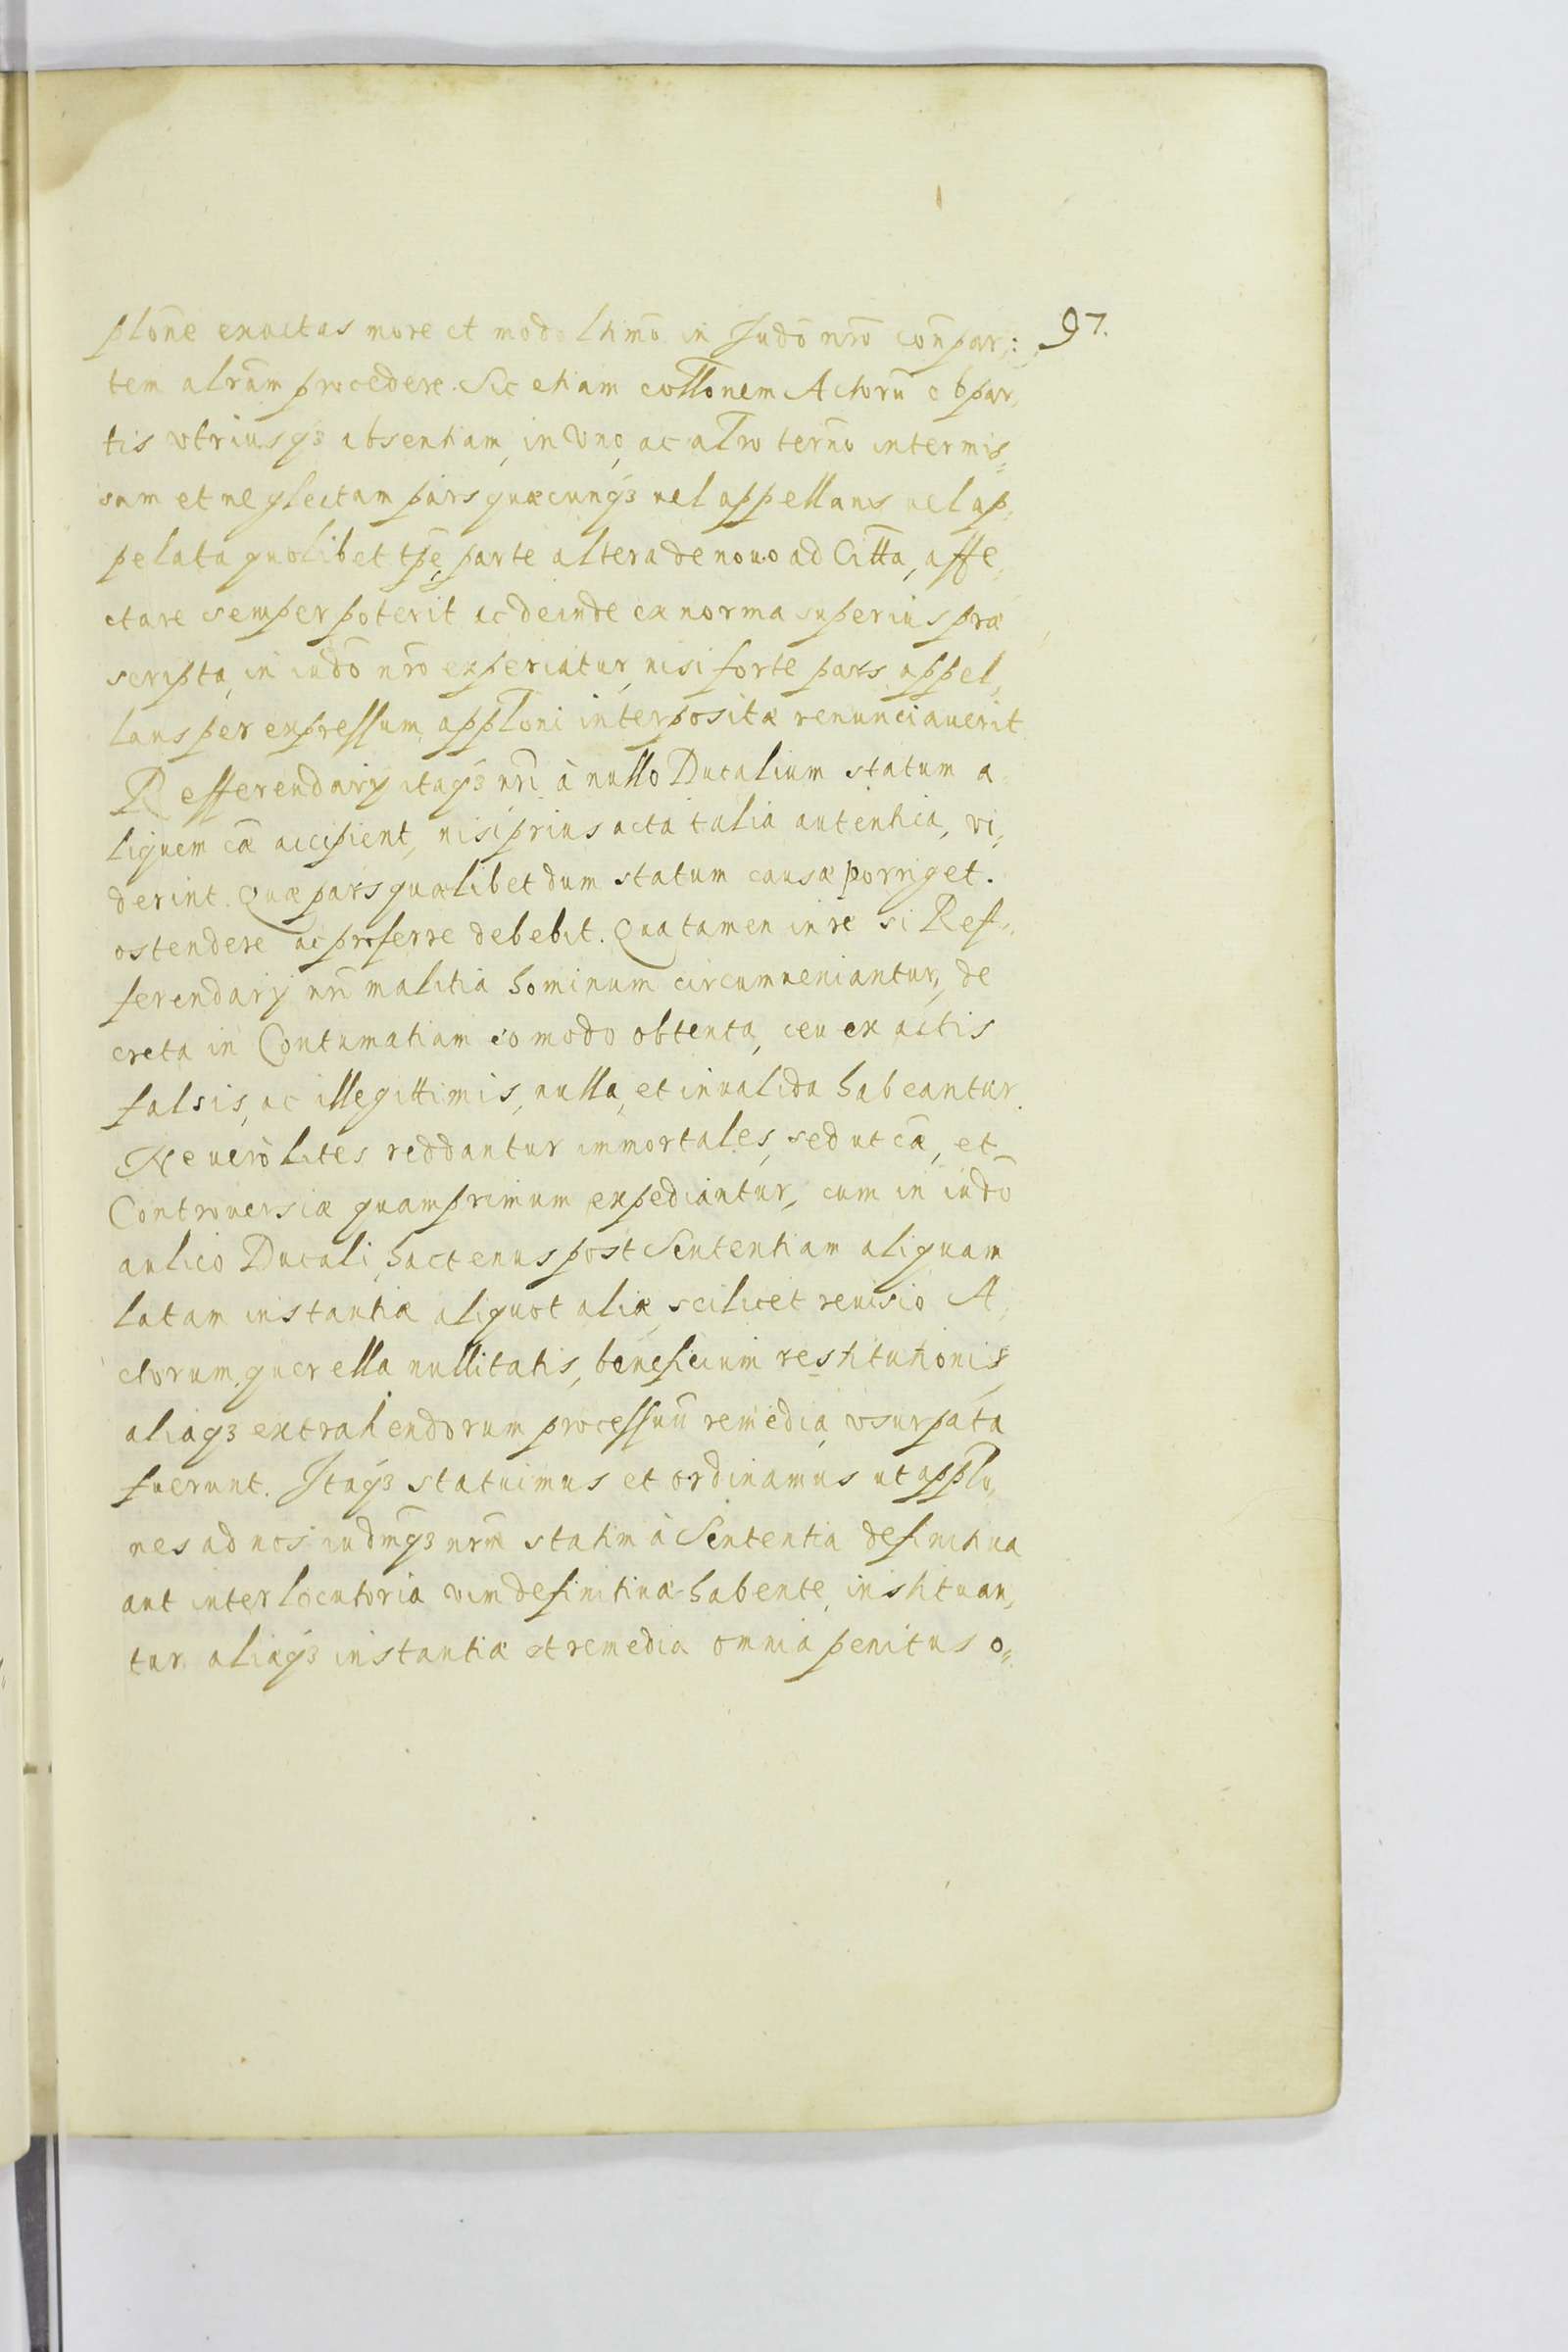 97.
plõne exactas more et modo lt̃imo in Judõ nrõ con̄par:
tem alr̃am procedere. Sic etiam colloñem Actorũ ob par,
tis vtriusqȝ absentiam, in vno, ac altro term̃o intermis=
sam et neglectam pars quæcunqȝ uel appellans uel ap,
pelata quolibet tp̃e, parte altera denouo ad Citt̃a, affe,
ctare semper poterit ac deinde ex norma superius præ
scripta, in iudõ nrõ experiatur, nisi forte pars appel,
lans per expressum appl̃oni interpositæ renunciauerit
Refferendarij itaqȝ nr̃i à nullo Ducalium statum a
liquem cæ̃ accipient, nisi prius acta talia autentica, vi,
derint. Quæ pars quælibet dum statum causæ porriget.
ostendere ac proferre debebit. Qua tamen in re si Ref=
ferendarij nr̃i malitia hominum circumueniantur, de
creta in Contumatiam eo modo obtenta, ceu ex actis
falsis, ac illegittimis, nulla, et inualida habeantur.
Ne uerò lites reddantur immortales, sed ut cæ̃, et
Controuersiæ quamprimum expediantur, cum in iudõ
aulico Ducali, hactenus post Sententiam aliquam
latam instantiæ aliquot aliæ, scilicet reuisio A,
ctorum, querella nullitatis, beneficium restitutionis,
aliaqȝ extrahendorum processuũ remedia, vsurpata
fuerunt. Itaqȝ statuimus et ordinamus ut appl̃o,
nes ad nos iudm̃qȝ nrm̃ statim à Sententia definitiua
aut interlocutoria vim definitiuæ habente, instituan,
tur, aliæqȝ instantiæ et remedia omnia penitus o=